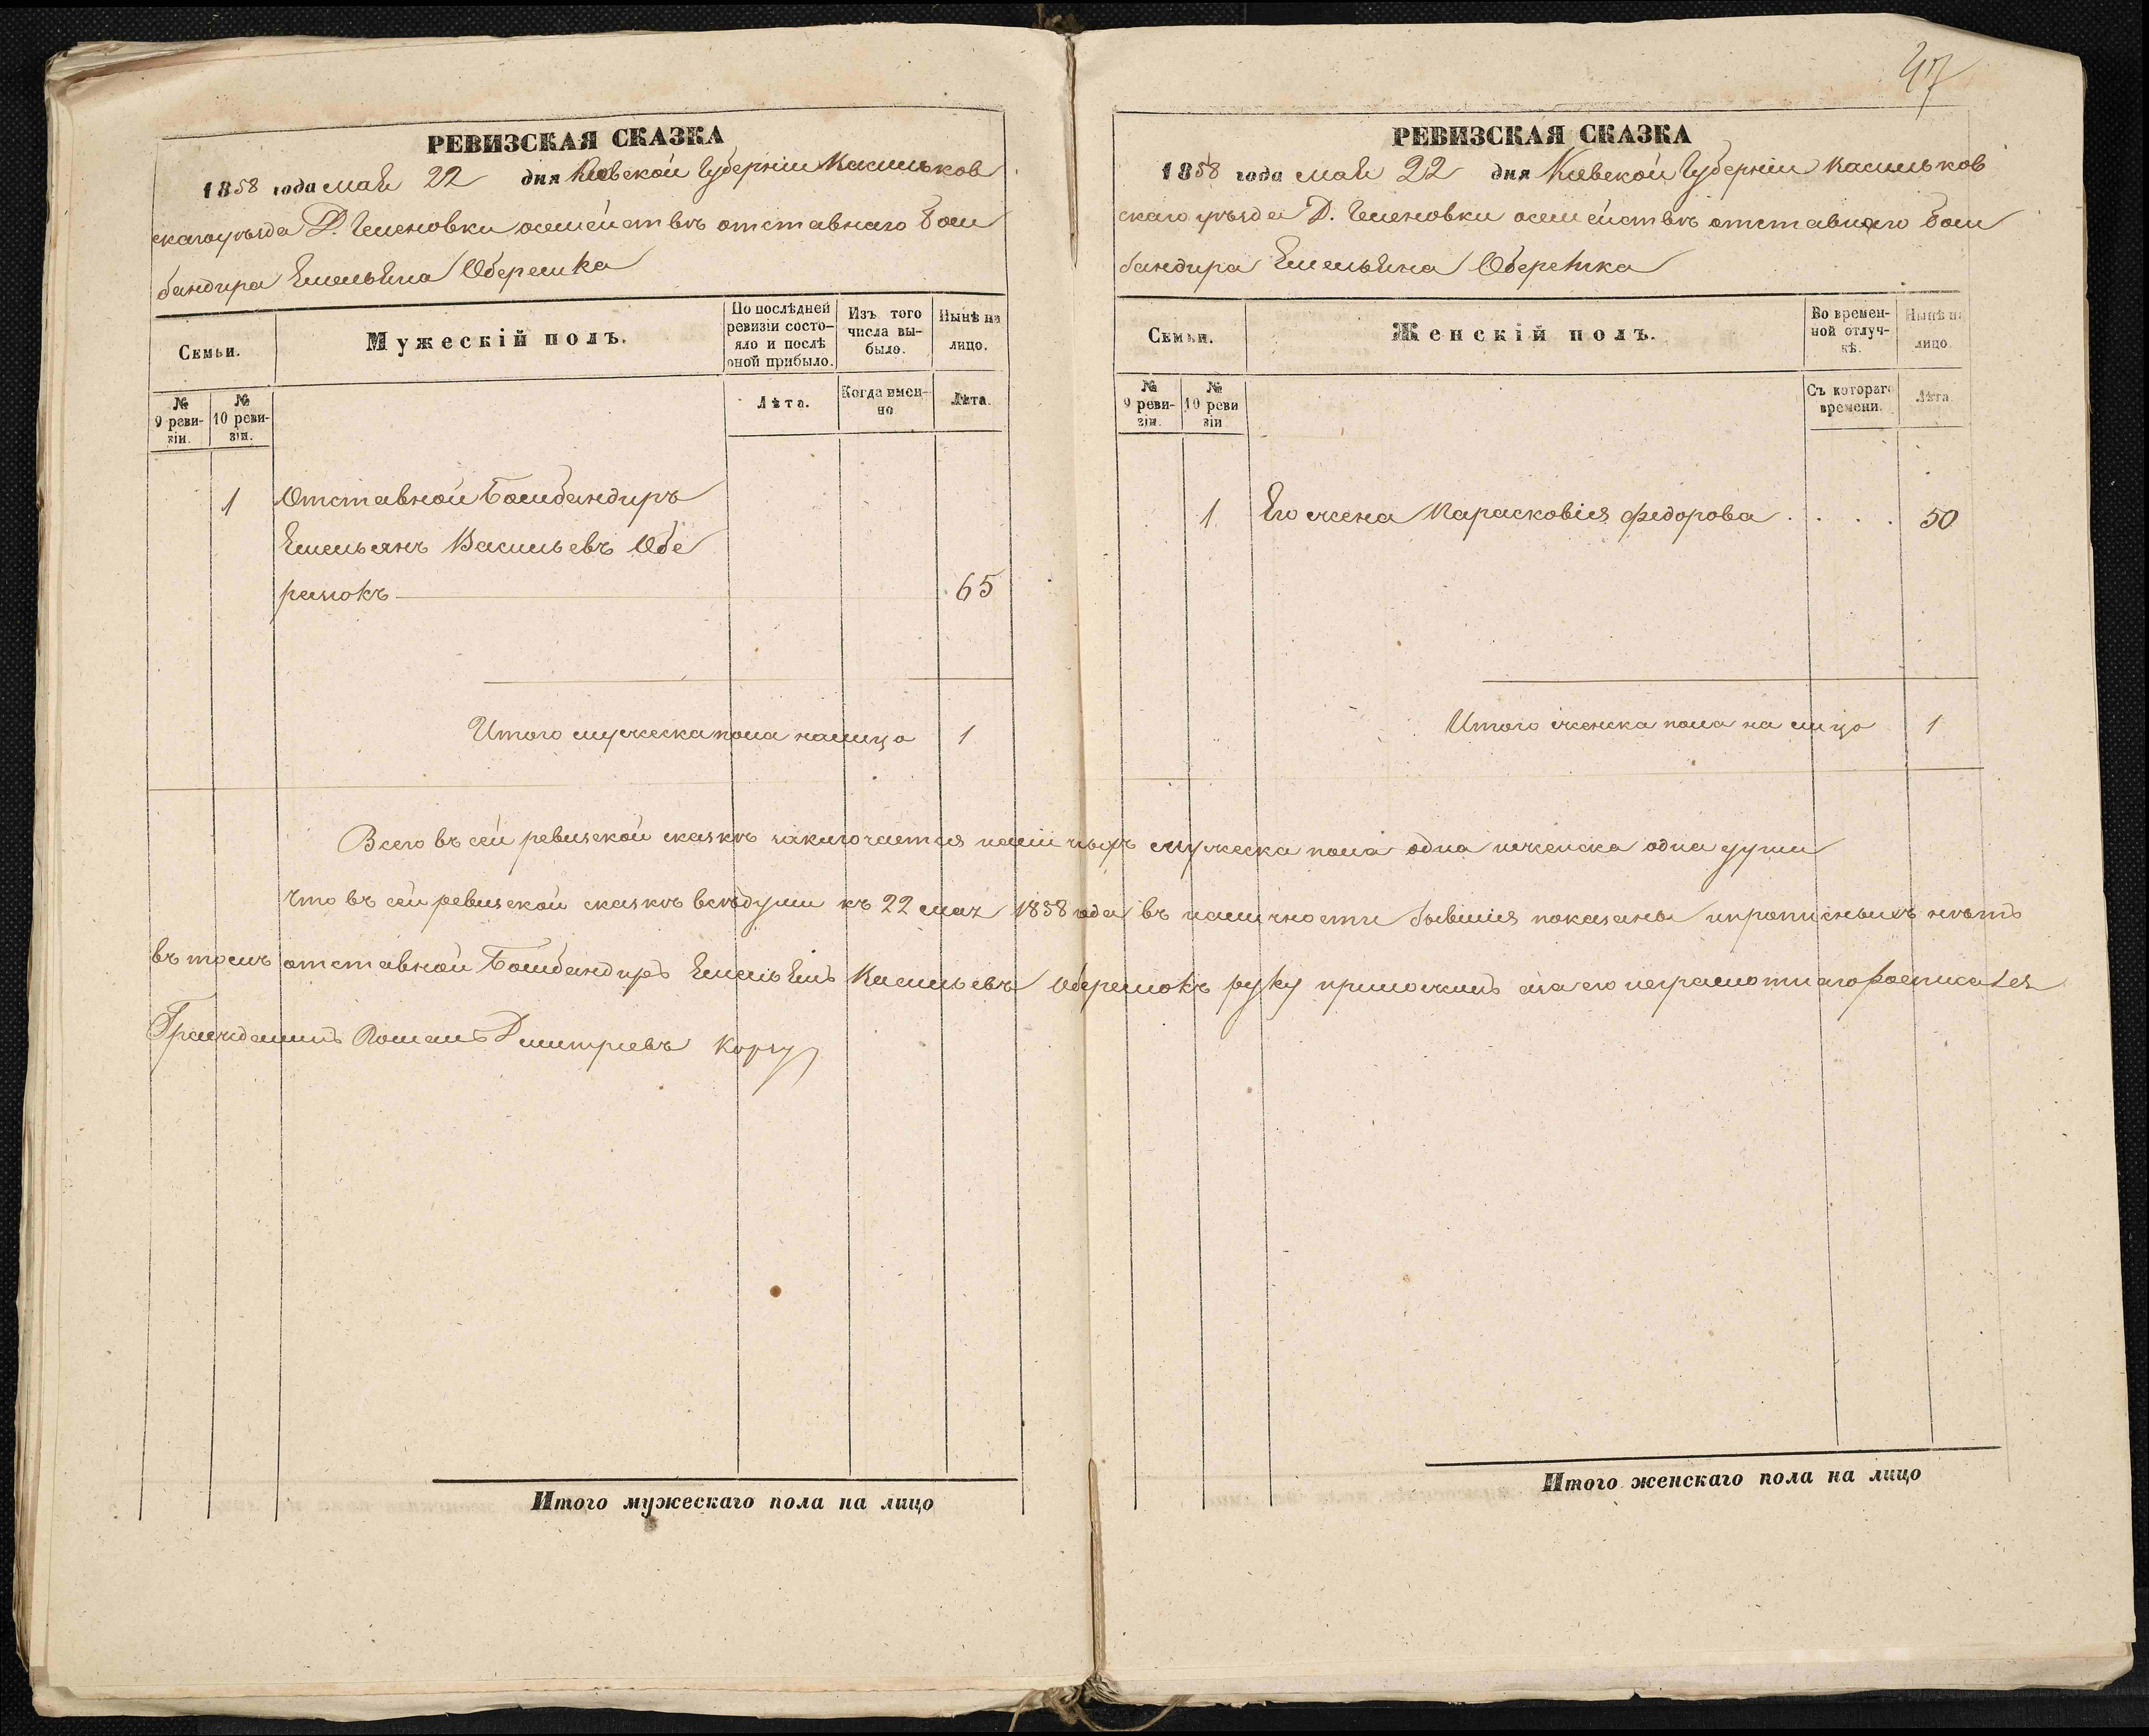 47
РЕВИЗСКАЯ СКАЗКА
1858 года мая 22 дня Киевской Губерніи Васильков
скаго уѣзда Д. осемействѣ отставнаго бом
бандира Емельяна
Семьи.
Мужескій полъ.
По послѣдней ревизіи состояло и послѣ оной прибыло.
Изъ того числа выбыло.
Нынѣ на лицо.
№ 9 ревизіи.
№ 10 ревизіи.
Лѣта.
Когда именно
Лѣта.
1 Отставной Бомбандиръ
Емельянъ Васильевъ Обе
ремокъ 65
Итого мужеска пола налицо 1
РЕВИЗСКАЯ СКАЗКА
1858 года мая 22 дня Киевской Губерніи Васильков
скаго уѣзда Д. осемействѣ отставнаго бом
бандира Емельяна
Семьи.
Женскій полъ.
Во временной отлучкѣ.
Нынѣ на лицо
№ 9 ревизіи.
№ 10 ревизіи
Съ котораго времени.
Лѣта
1 Его жена Парасковія Федорова . . . . 50
Итого женска пола на лицо 1
Всего въ сей ревизской сказкѣ заключается наличныхъ мужеска пола одна и женска одна души
Что въ сей ревизской сказкѣ всѣ души къ 22 мая 1858 года въ наличности бывшія показаны и прописныхъ нѣтъ
въ томъ отставной Бомбандиръ Емельянъ Васильевъ Оберемокъ руку приложилъ а за его неграмотнаго росписался
Гражданинъ Романъ Дмитріевъ
Итого мужескаго пола на лицо
Итого женскаго пола на лицо